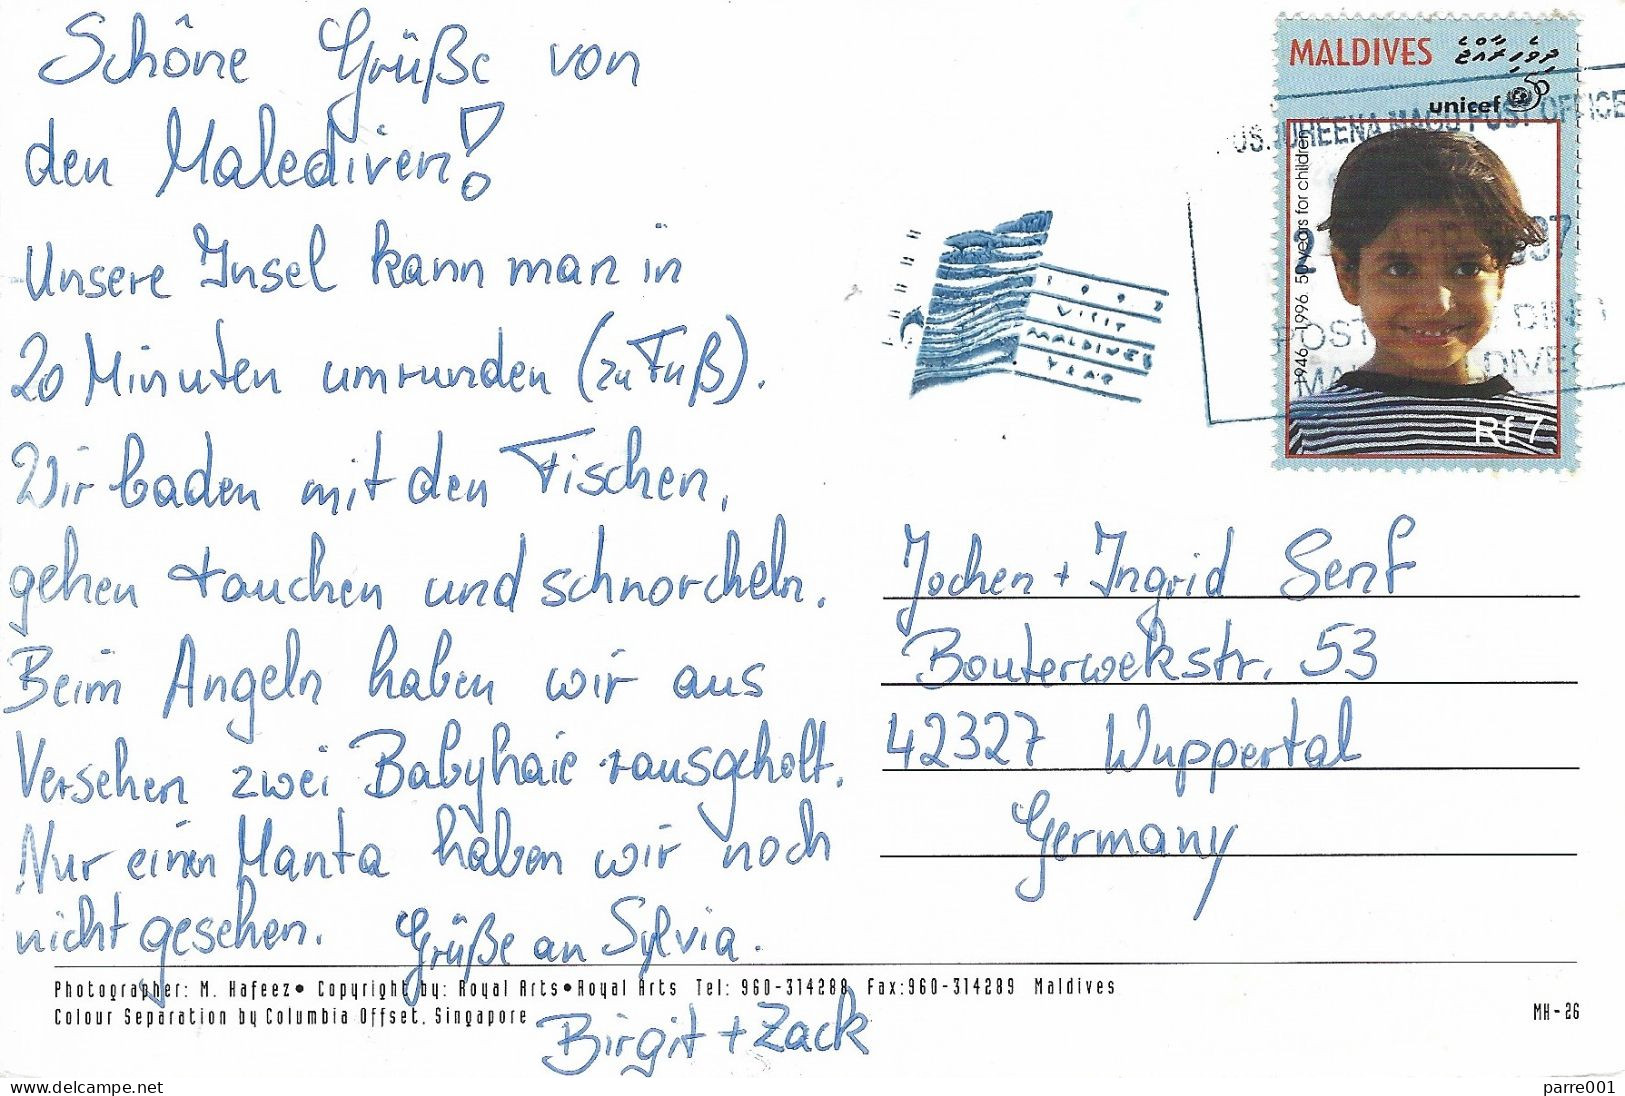 Schöne Grüße von
den Malediven!
Unsere Insel kann man in
20 Minuten umrunden (zu Fuß).
Wir baden mit den Fischen,
gehen tauchen und schnorcheln.
Beim Angeln haben wir aus
Versehen zwei Babyhaie rausgeholt.
Nur einen Manta haben wir noch
nicht gesehen. Grüße an Sylvia.
Birgit + Zack
MALDIVES ދިވެހިރާއްޖެ
unicef 50
1946–1996 50 years for children
Rf 7
POST OFFICE
1997
VISIT
MALDIVES
YEAR
Jochen + Ingrid Senf
Bouterwekstr. 53
42327 Wuppertal
Germany
Photographer: M. Hafeez• Copyright by: Royal Arts•Royal Arts Tel: 960-314288 Fax:960-314289 Maldives
Colour Separation by Columbia Offset, Singapore
MH-26
www.delcampe.net
parre001